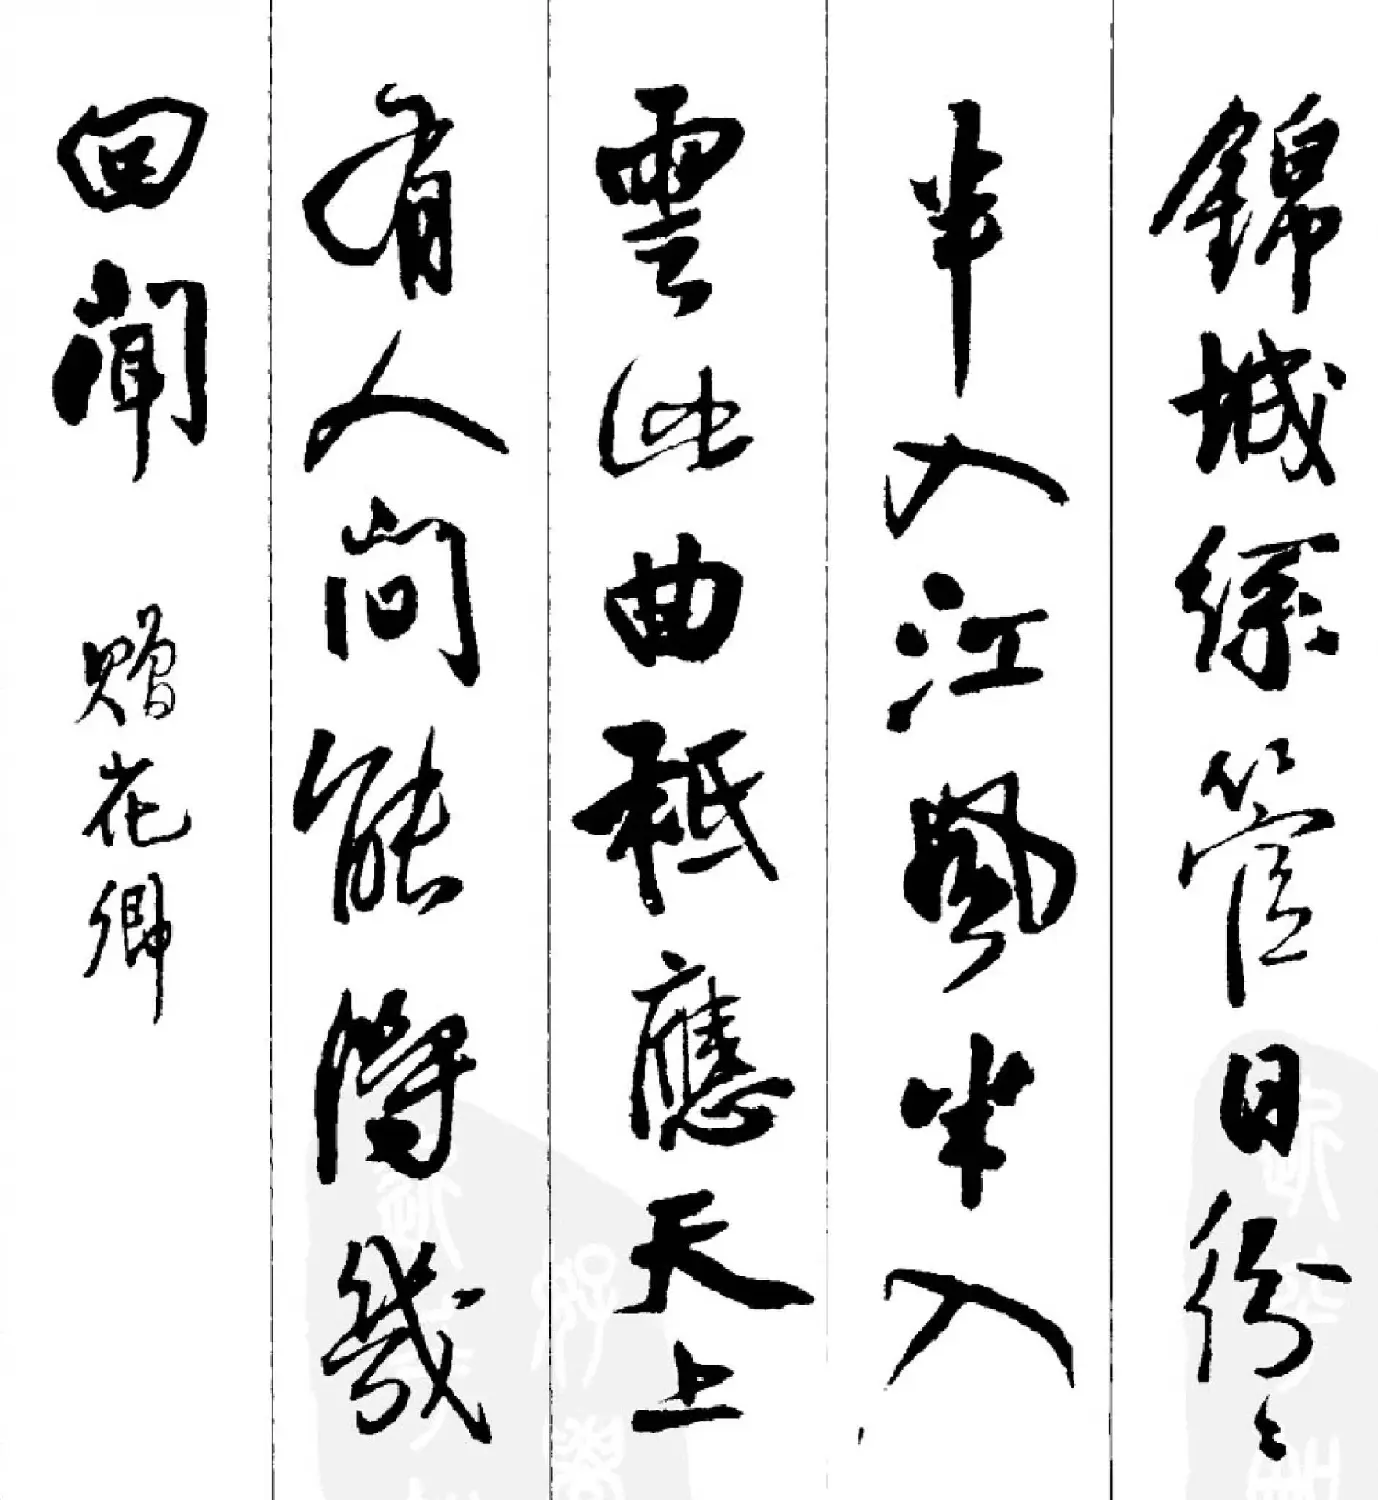 錦城絲管日紛〻
半入江風半入
雲此曲秖應天上
有人間能得幾
回聞 贈花卿